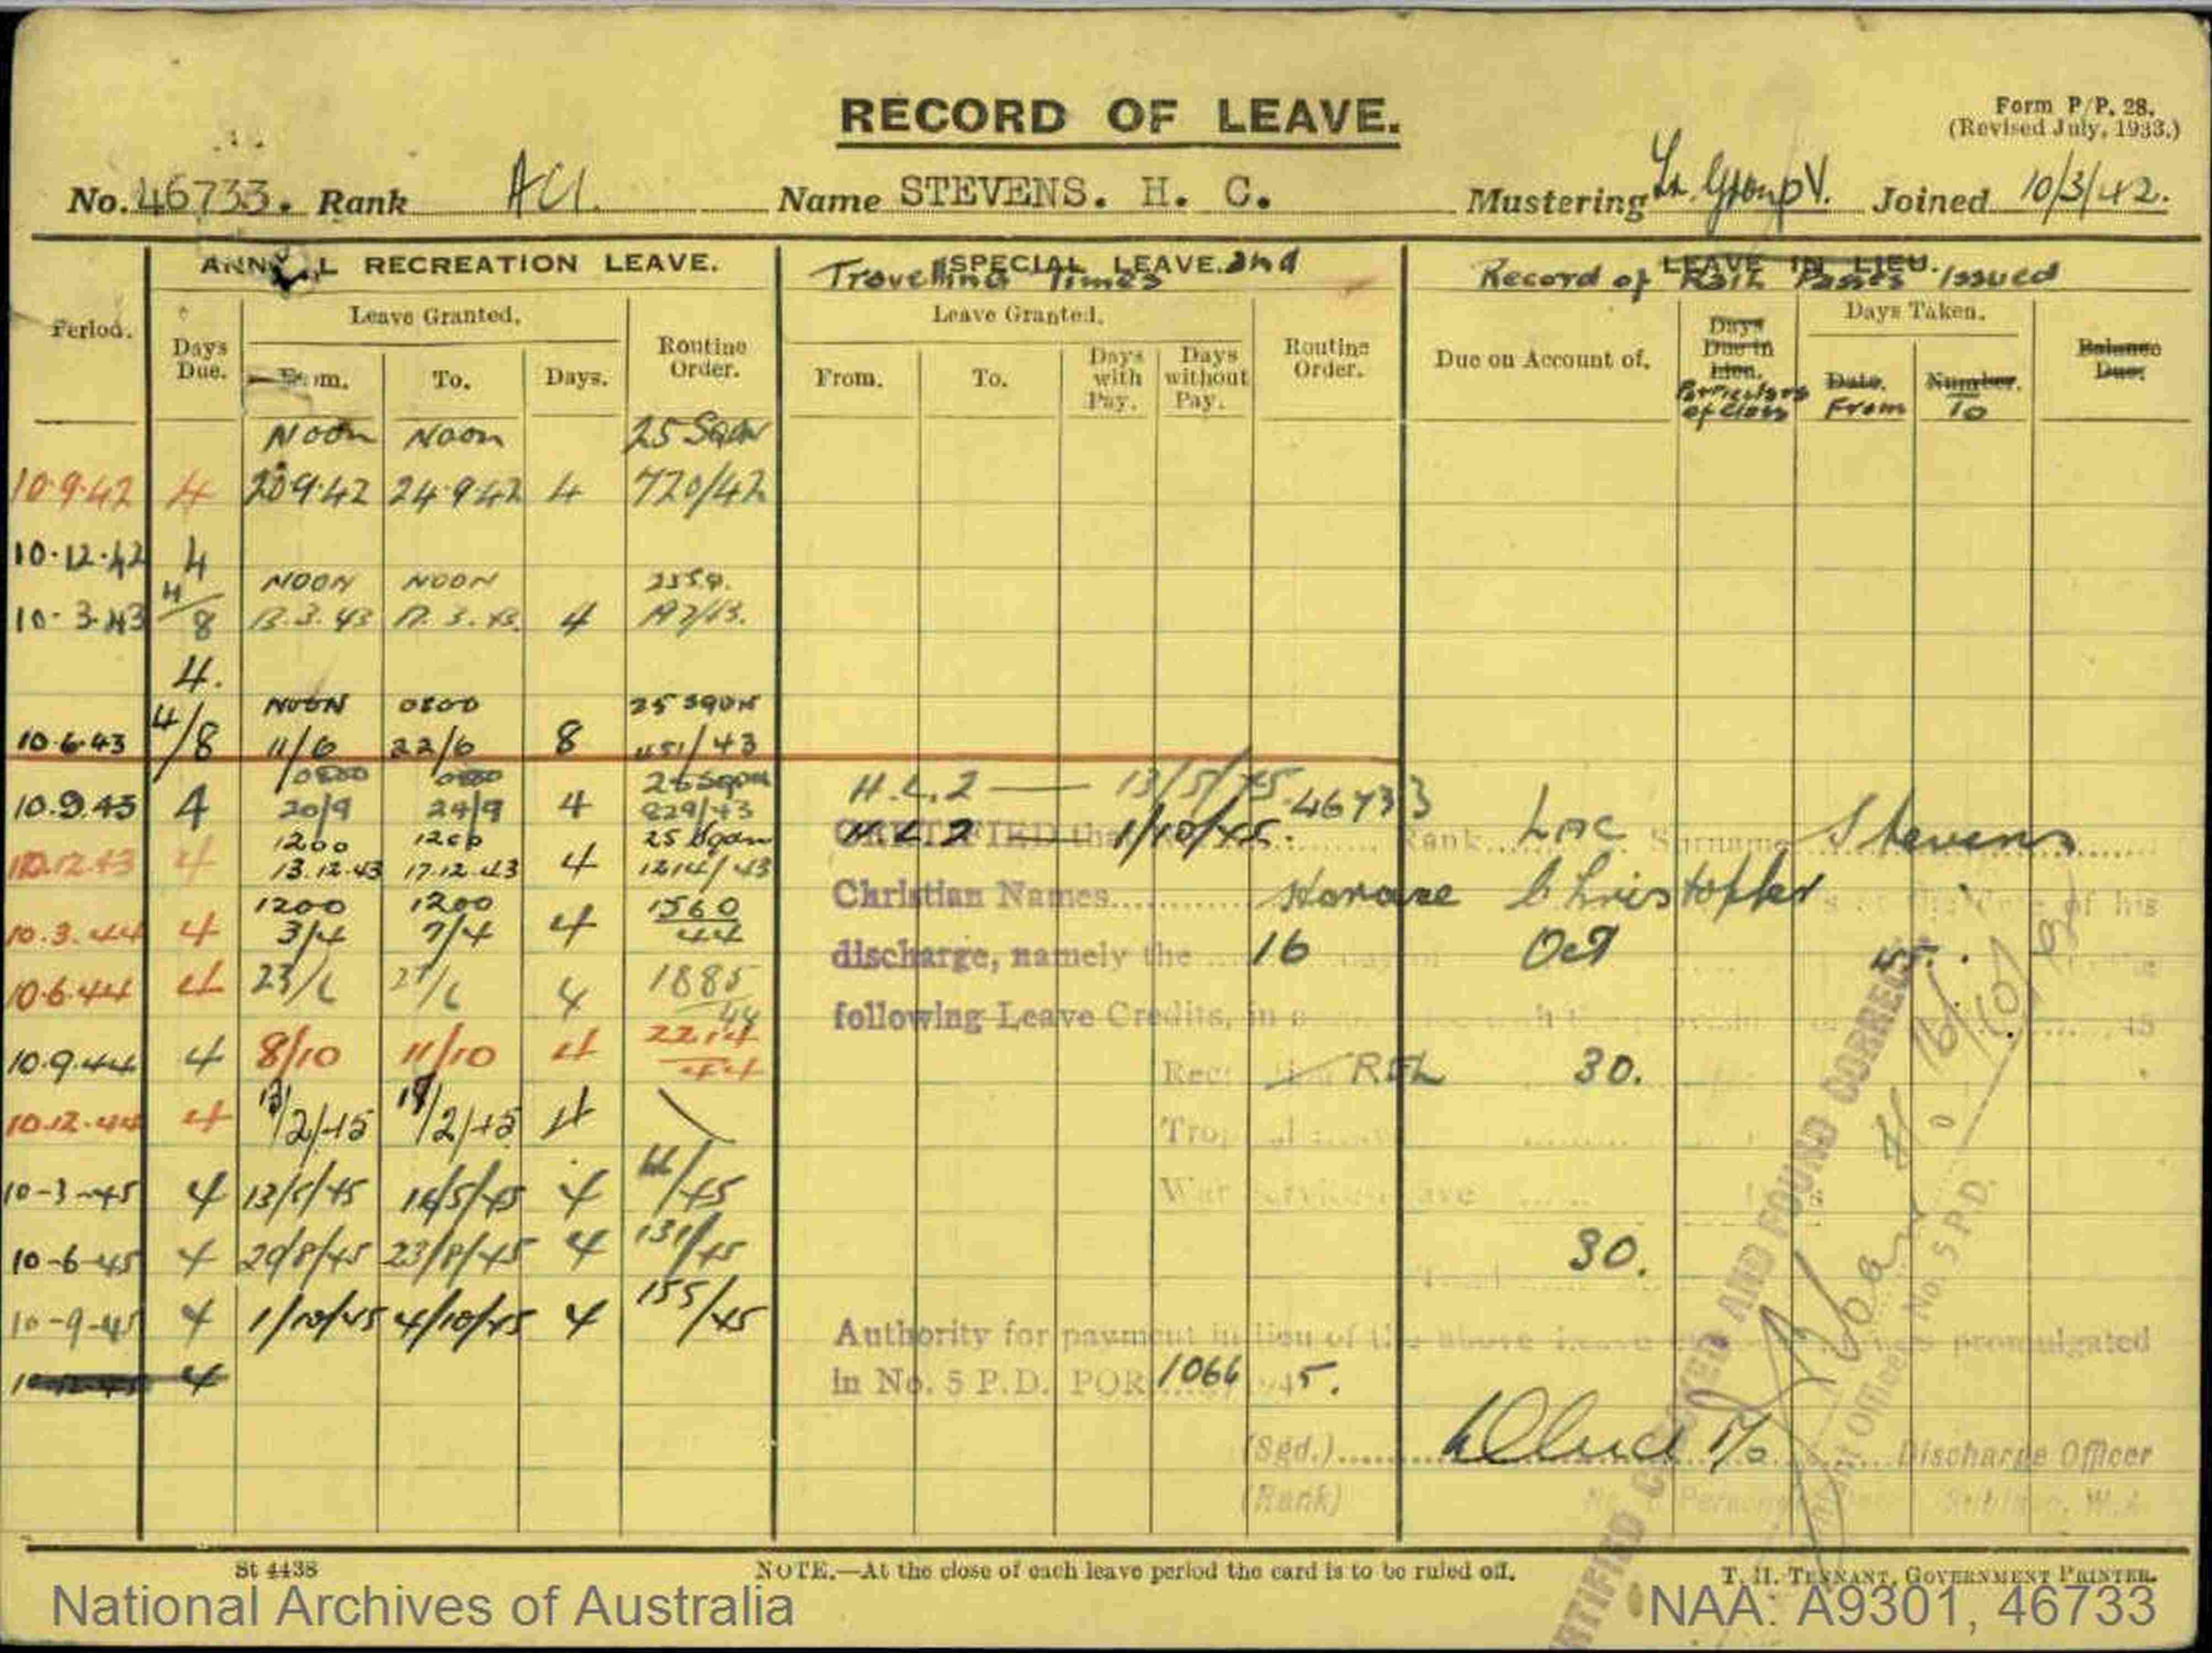 RECORD OF LEAVE.
Form P/P. 28.
(Revised July, 1933.)
No. 46733. Rank AC1. Name STEVENS. H. C. Mustering Group V. Joined 10/3/42.
ANNUAL RECREATION LEAVE. SPECIAL LEAVE. and LEAVE IN LIEU.
Travelling Times Record of Rail Passes Issued
Period. Days Due. Leave Granted. Routine Order. Leave Granted. Routine Order. Due on Account of. Days Due in Lieu. Days Taken. Balance Due.
From. To. Days. From. To. Days with Pay. Days without Pay. Particulars of Class Date. From Number. To
Noon Noon 25 Sqdn
10.9.42 4 20 9.42 24.9.42 4 720/42
10.12.42 4
NOON NOON
10.3.43 4/8 13.3.43 17.3.43 4
4.
NOON 0800 25 SQDN
10.6.43 4/8 11/6 22/6 8 /43
0800 0800 25 Sqdn
10.9.43 4 20/9 24/9 4 829/43
1200 1200 25 Sqdn
10.12.43 4 13.12.43 17.12.43 4 1214/43
1200 1200 1560
10.3.44 4 3/4 7/4 4 44
10.6.44 4 23/6 27/6 4 1885/44
10.9.44 4 8/10 11/10 4 2214/44
10.12.44 4 /2/45 /2/45 4
10-3-45 4 13/5/45 16/5/45 4 /45
10-6-45 4 20/8/45 23/8/45 4 131/45
10-9-45 4 1/10/45 4/10/45 4 155/45
4
H.L.2 — 13/5/45
H.L.2 1/10/45.
CERTIFIED that 46733 Rank LAC Surname Stevens
Christian Names Horace Christopher of his
discharge, namely the 16 Oct 45.
following Leave Credits, in
Rec REL 30.
War Service Leave
30.
Authority for payment in lieu of the above promulgated
in No. 5 P.D. POR 1066 45.
(Sgd.) Discharge Officer
(Rank)
CERTIFIED CHECKED AND FOUND CORRECT
16/10/45
No. 5 P.D.
St 4438 NOTE.—At the close of each leave period the card is to be ruled off. T. H. TENNANT, GOVERNMENT PRINTER.
National Archives of Australia NAA: A9301, 46733